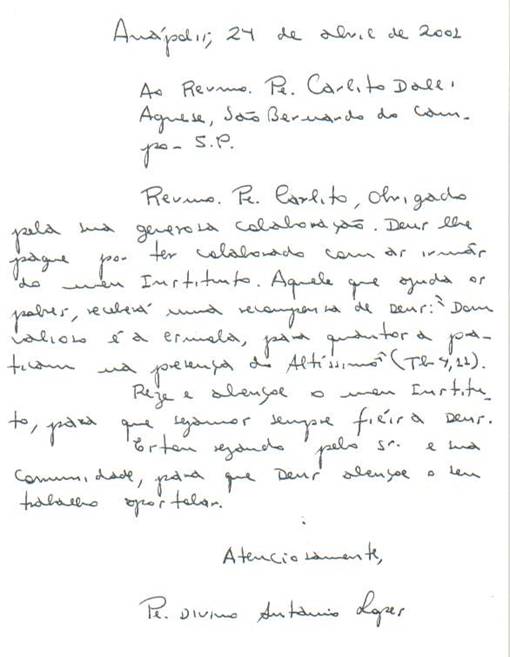 Anápolis, 24 de abril de 2002
Ao Revmo. Pe. Carlito Dall'
Agnese, São Bernardo do Cam-
po - S.P.
Revmo. Pe. Carlito, Obrigado
pela sua generosa colaboração. Deus lhe
pague por ter colaborado com as irmãs
do meu Instituto. Aquele que ajuda os
pobres, receberá uma recompensa de Deus: "Dom
valioso é a esmola, para quantos a pra-
ticam na presença do Altíssimo" (Tb 4,11).
Reze e abençoe o meu Institu-
to, para que sejamos sempre fiéis a Deus.
Estou rezando pelo sr. e sua
comunidade, para que Deus abençoe o seu
trabalho apostolar.
Atenciosamente,
Pe. Divino Antônio Lopes